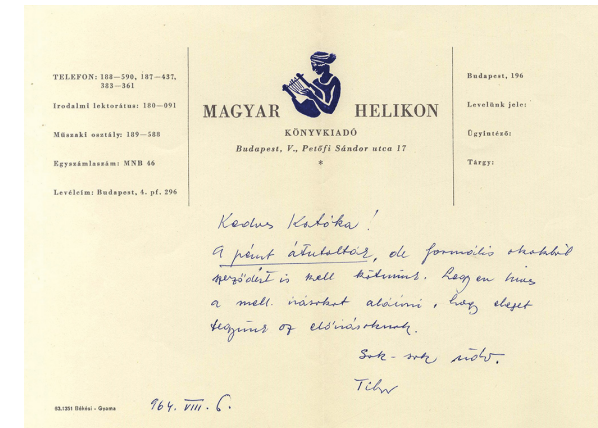 TELEFON: 188—590, 187—437,
383—361
Irodalmi lektorátus: 180—091
Műszaki osztály: 189—588
Egyszámlaszám: MNB 46
Levélcím: Budapest, 4. pf. 296
MAGYAR HELIKON
KÖNYVKIADÓ
Budapest, V., Petőfi Sándor utca 17
*
Budapest, 196
Levelünk jele:
Ügyintéző:
Tárgy:
Kedves Katóka!
A pénzt átutolták, de formális okokból
szerződést is kell kötnünk. Legyen szíves
a mell. írásokat aláírni, hogy eleget
tegyünk az előírásoknak.
Sok-sok üdv.
Tibor
63.1351 Békési - Gyoma
964. VIII. 6.